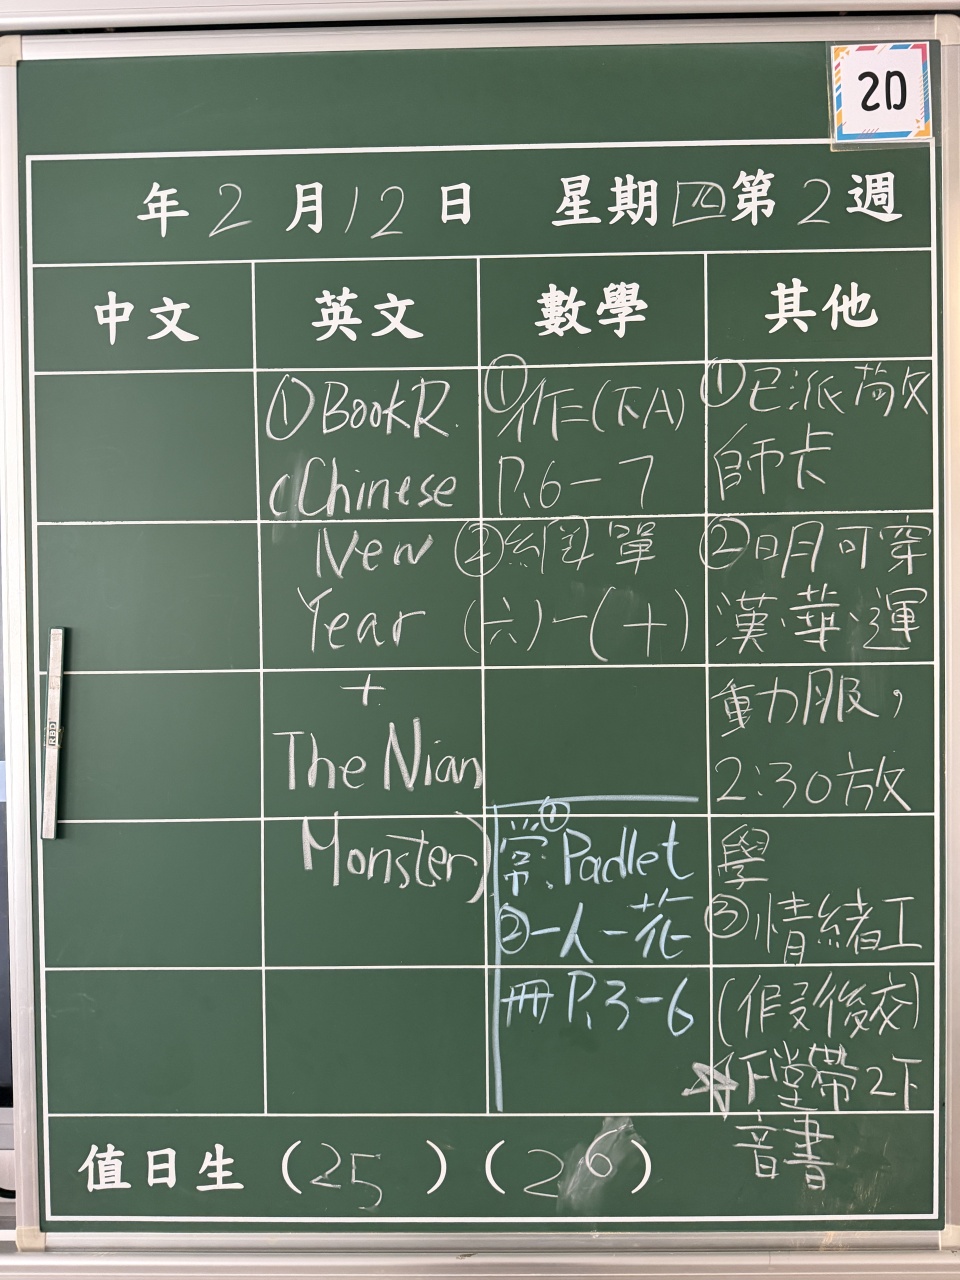 2D
年 2 月 12 日 星期 四 第 2 週
中文 英文 數學 其他
①BookR.
(Chinese
New
Year
+
The Nian
Monster)
①作(下A)
P.6-7
單
(六)-(十)
①常.Padlet
②一人一花
冊P.3-6
①已派敬
師卡
②明可穿
漢.華.運
動服，
2:30放
學
③情緒工
(假後交)
☆下堂帶2下
音書
值日生 (25) (26)